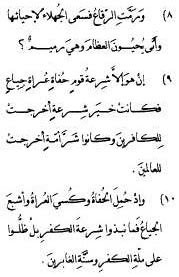 ٨) ورَمَّتِ الرِّقاعُ فسَعى الجُهلاءُ لإحيائها
وأنّى يُحيونَ العِظامَ وهي رميمٌ ؟
٩) إنْ هو إلاَّ شِرعةُ قومٍ حُفاةٍ عُراةٍ جياعٍ
فكانت خيرَ شِرعةٍ أخرجتْ
للكافرينَ وكانوا شرَّ أمةٍ أخرجتْ
للعالمين.
١٠) وإذ حُمِلَ الحُفاةُ وكُسيَ العُراةُ وأُشبعَ
الجياعُ فما نبذوا شِرعةَ الكفرِ بلْ ظلُّوا
على مِلَّةِ الكفرِ وسُنَّةِ الغابرينَ.